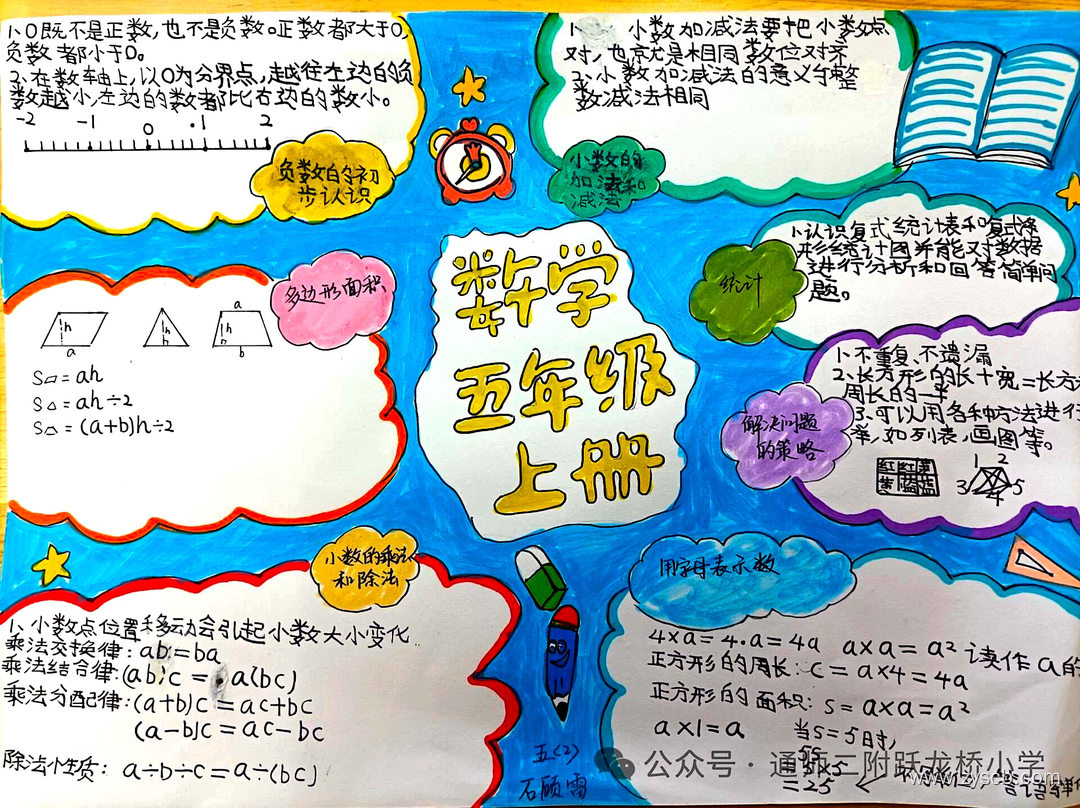 1、0既不是正数,也不是负数。正数都大于0,
负数都小于0。
2、在数轴上,以0为分界点,越往左边的负
数越小,左边的数都比右边的数小。
-2 -1 0 1 2
负数的初
步认识
1、小数加减法要把小数点
对,也就是相同数位对齐
2、小数加减法的意义与整
数减法相同
小数的
加法和
减法
多边形面积
h
a
h
a
h
b
S▱=ah
S△=ah÷2
S△=(a+b)h÷2
数学
五年级
上册
统计
1、认识复式统计表和复式条
形统计图并能对数据
进行分析和回答简单问
题。
解决问题
的策略
1、不重复,不遗漏
2、长方形的长+宽=长方
周长的一半
3、可以用各种方法进行
举,如列表,画图等。
1 2
3 4 5
小数的乘法
和除法
1、小数点位置移动会引起小数大小变化
乘法交换律:ab=ba
乘法结合律:(ab)c=a(bc)
乘法分配律:(a+b)c=ac+bc
(a-b)c=ac-bc
除法性质:a÷b÷c=a÷(bc)
用字母表示数
4×a=4·a=4a a×a=a² 读作a的
正方形的周长:c=a×4=4a
正方形的面积:s=a×a=a²
a×1=a
当S=5时,
5S
=5×5
=25
五(2)
公众号·通师二附跃龙桥小学
www.zyscg.com